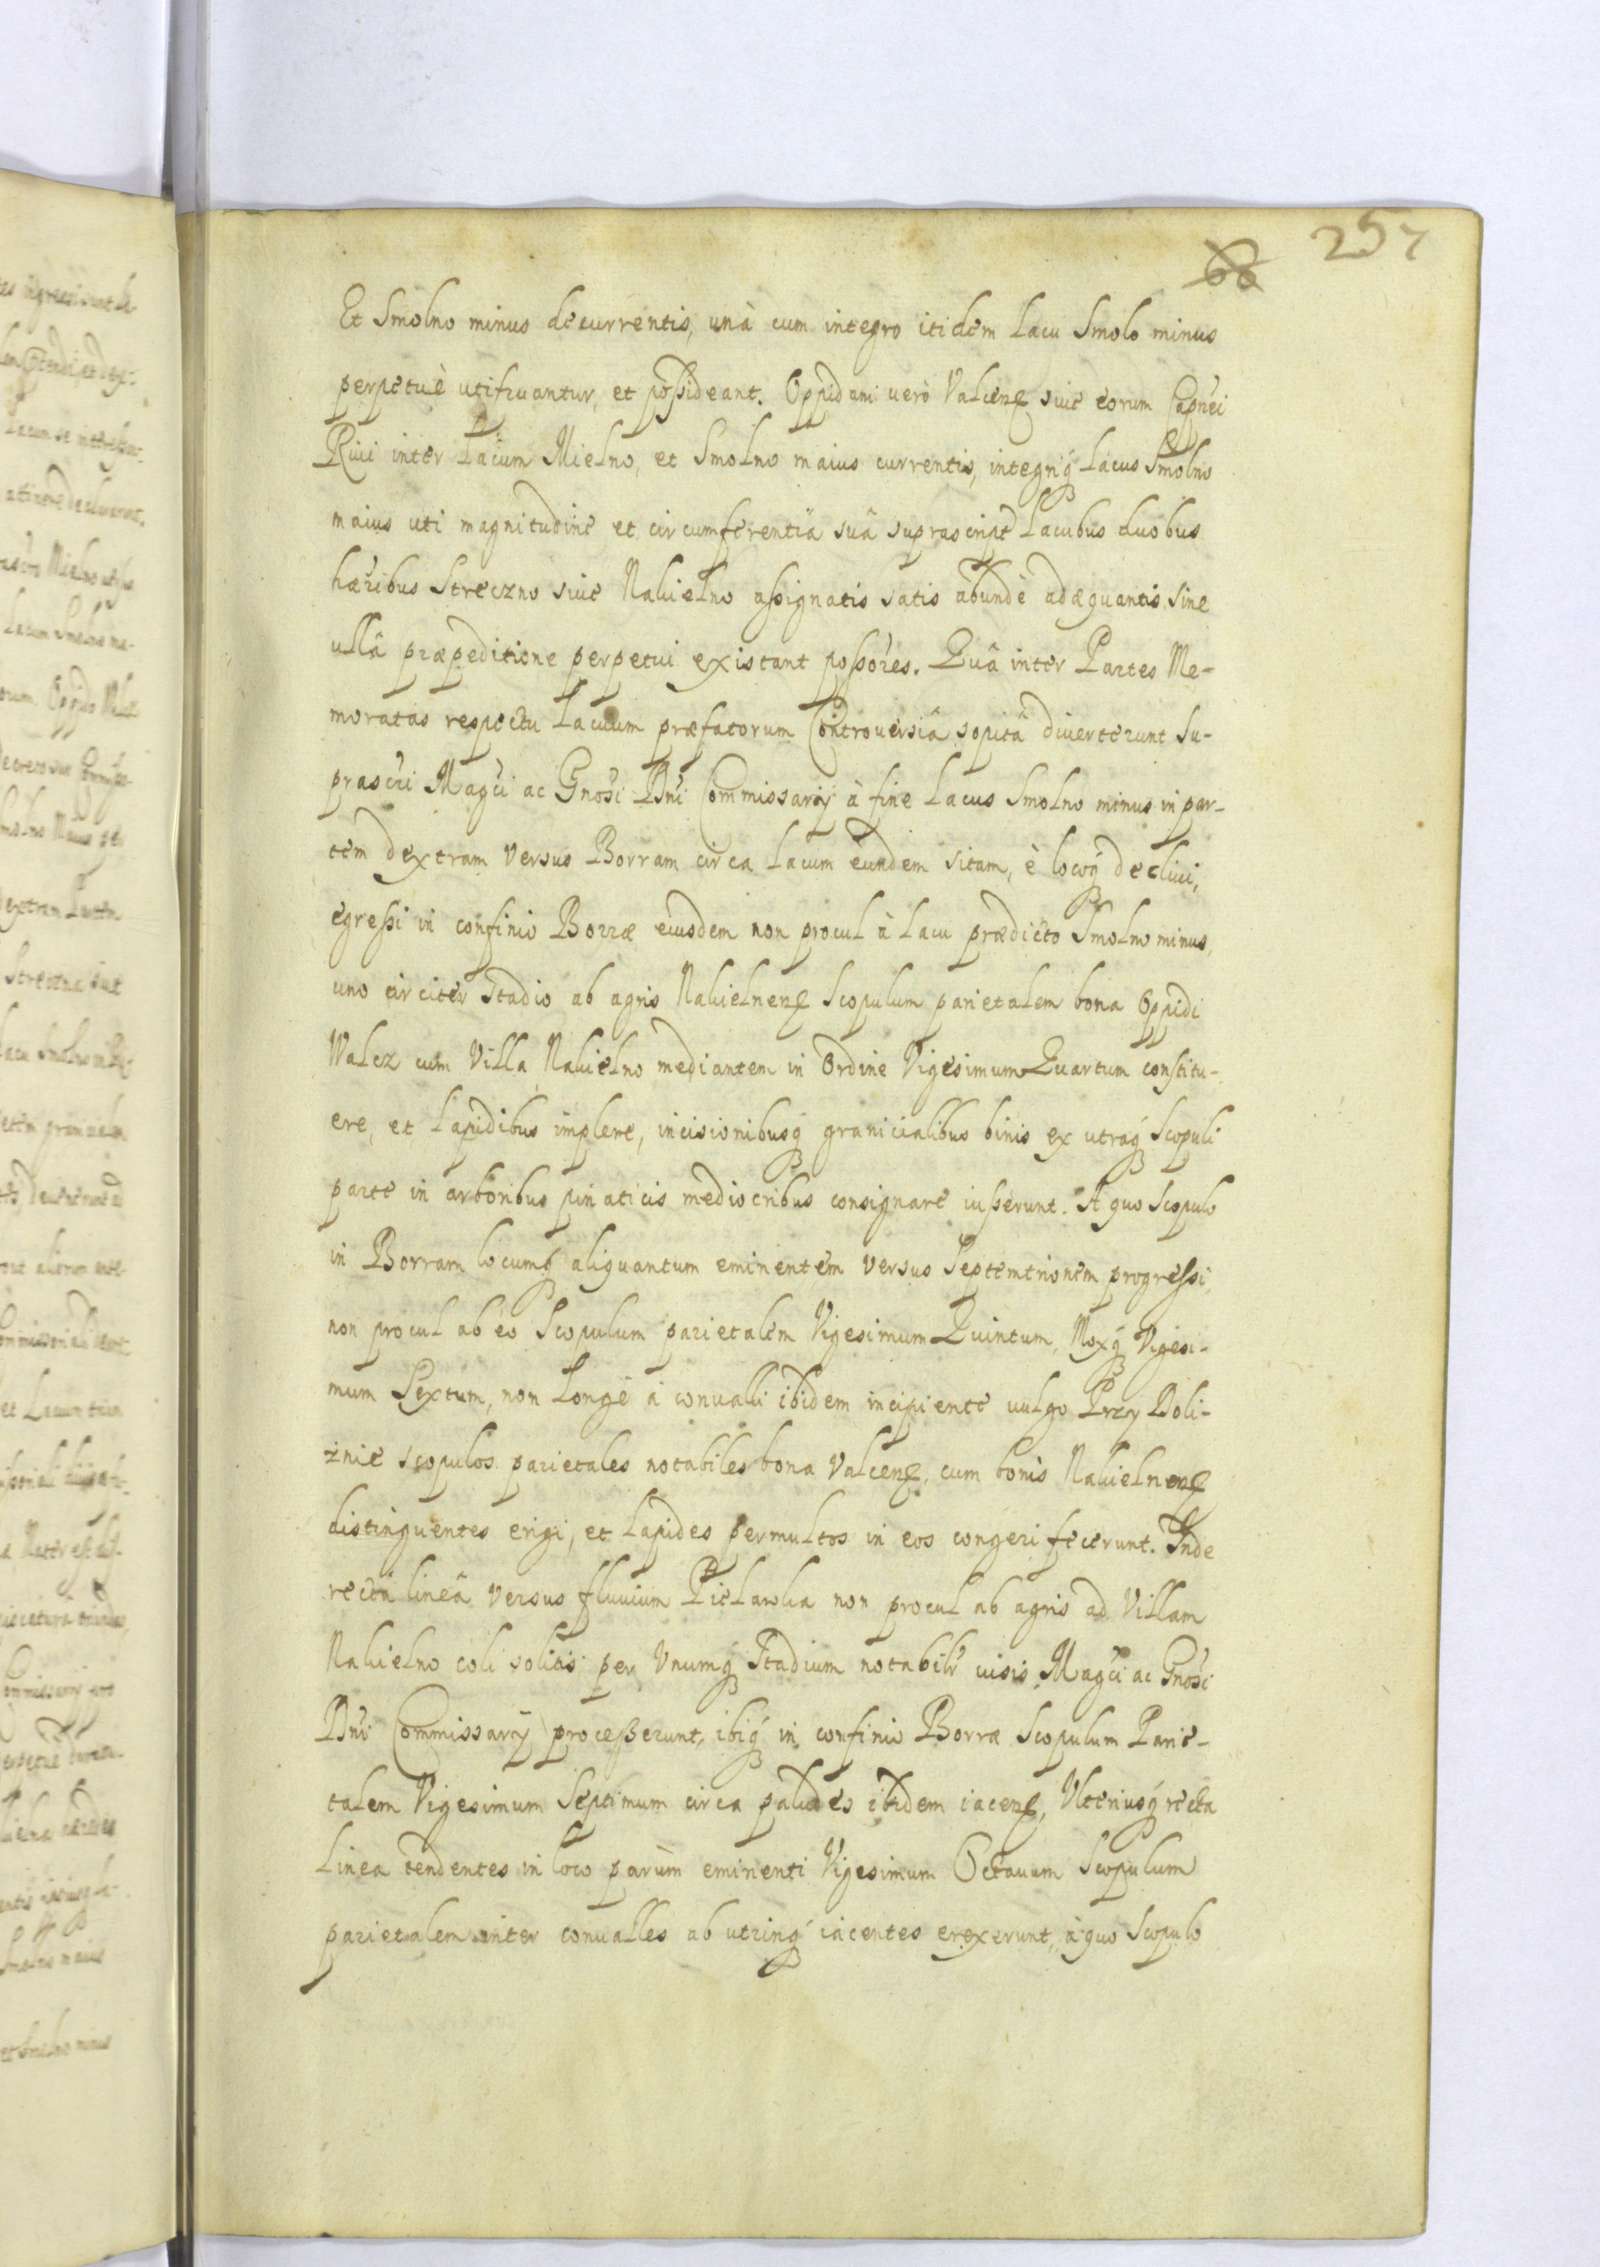 257
68
Et Smolno minus decurrentis, unà cum integro itidem Lacu Smolo minus
perpetuè utifruantur, et possideant. Oppidani verò Valcenz siue eorum Capnei
Riui inter Lacum Mielno, et Smolno maius currentis, integriq́ Lacus Smolno
maius uti magnitudine et circumferentiâ suâ suprascript Lacubus duobus
hæribus Streczno siue Nakielno assignatis satis abundè adæquantis sine
ullâ præpeditione perpetui existant possores. Quâ inter Partes Me-
moratas respectu Lacuum præfatorum Controuersiâ sopitâ diuerterunt Su-
prascri Magci ac Gnosi Dni Commissarij à fine Lacus Smolno minus in par-
tem dextram versus Borram circa Lacum eundem sitam, è locoq́ decliui,
egressi in confinio Borræ eiusdem non procul à Lacu prædicto Smolno minus,
uno circiter Stadio ab agris Nakielnenz Scopulum parietalem bona Oppidi
Walcz cum Villa Nakielno mediantem in Ordine Vigesimum Quartum constitu-
ere, et Lapidibus implere, incisionibusq́ granicialibus binis ex utraq́ Scopuli
parte in arboribus pinaticis mediocribus consignare iusserunt. A quo Scopulo
in Borram locumq́ aliquantum eminentem versus Septemtrionem progressi,
non procul ab eo Scopulum parietalem Vigesimum Quintum, Moxq́ Vigesi-
mum Sextum, non Longè à conualli ibidem incipiente uulgo Przy Doli-
żnie scopulos parietales notabiles bona Valcenz, cum bonis Nakielnenz
distinguentes erigi, et Lapides permultos in eos congeri fecerunt. Inde
rectâ lineâ versus fluuium Pielawka non procul ab agris ad Villam
Nakielno coli solitis per Vnumq́ Stadium notabilr uisis Magci ac Gnosi
Dni Commissarij processerunt, ibiq́ in confinio Borræ Scopulum Parie-
talem Vigesimum Septimum circa paludes ibidem iacenz, Vlteriusq́ recta
Linea tendentes in loco parùm eminenti Vigesimum Octauum Scopulum
parietalem inter conualles ab utrinq́ iacentes erexerunt, à quo Scopulo